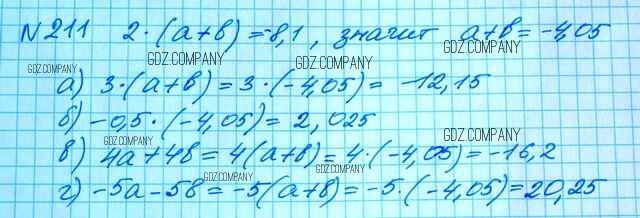 №211 2·(a+b)=-8,1, значит a+b=-4,05
GDZ.COMPANY GDZ.COMPANY
GDZ.COMPANY
а) 3·(a+b)=3·(-4,05)=-12,15
GDZ.COMPANY
б) -0,5·(-4,05)=2,025
GDZ.COMPANY GDZ.COMPANY
в) 4a+4b=4(a+b)=4·(-4,05)=-16,2
GDZ.COMPANY GDZ.COMPANY
г) -5a-5b=-5(a+b)=-5·(-4,05)=20,25